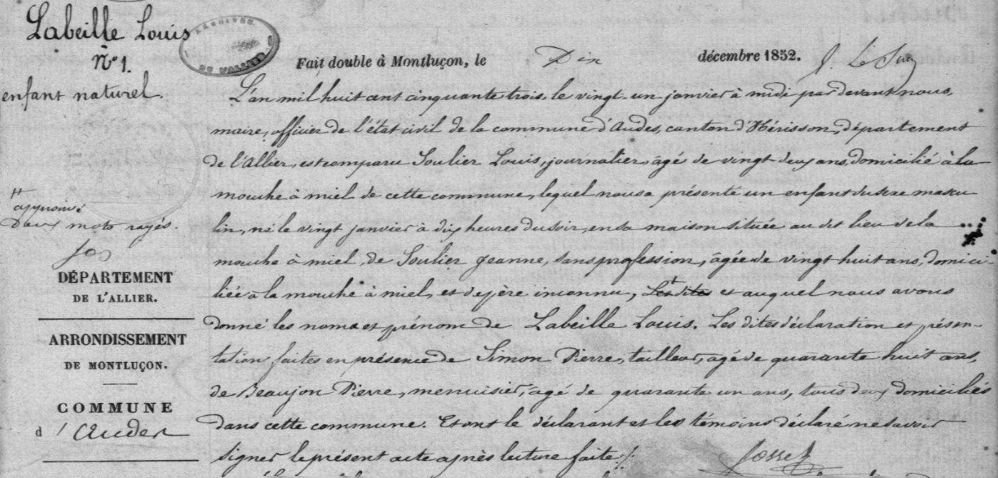 Labeille Louis
N° 1.
enfant naturel.
ARCHIVES
DE L'ALLIER
Fait double à Montluçon, le Dix décembre 1852.
L'an mil huit cent cinquante trois, le vingt-un janvier à midi par devant nous
maire, officier de l'état civil de la commune d'Audes, canton d'Hérisson, département
de l'Allier, est comparu Soulier Louis, journalier, âgé de vingt deux ans, domicilié à la
mouche à miel de cette commune, lequel nous a présenté un enfant du sexe mascu
lin, né le vingt janvier à dix heures du soir, en sa maison située au dit lieu de la
mouche à miel, de Soulier Jeanne, sans profession, âgée de vingt huit ans, domici
liée à la mouche à miel, et de père inconnu, et auquel nous avons
donné les noms et prénom de Labeille Louis. Les dites déclaration et présen
tation faites en présence de Simon Pierre, tailleur, âgé de quarante huit ans,
de Beaujon Pierre, menuisier, âgé de quarante un ans, tous deux domiciliés
dans cette commune. Et ont le déclarant et les témoins déclaré ne savoir
signer le présent acte après lecture faite ./.
deux mots rayés.
DÉPARTEMENT
DE L'ALLIER.
ARRONDISSEMENT
DE MONTLUÇON.
COMMUNE
d'Audes